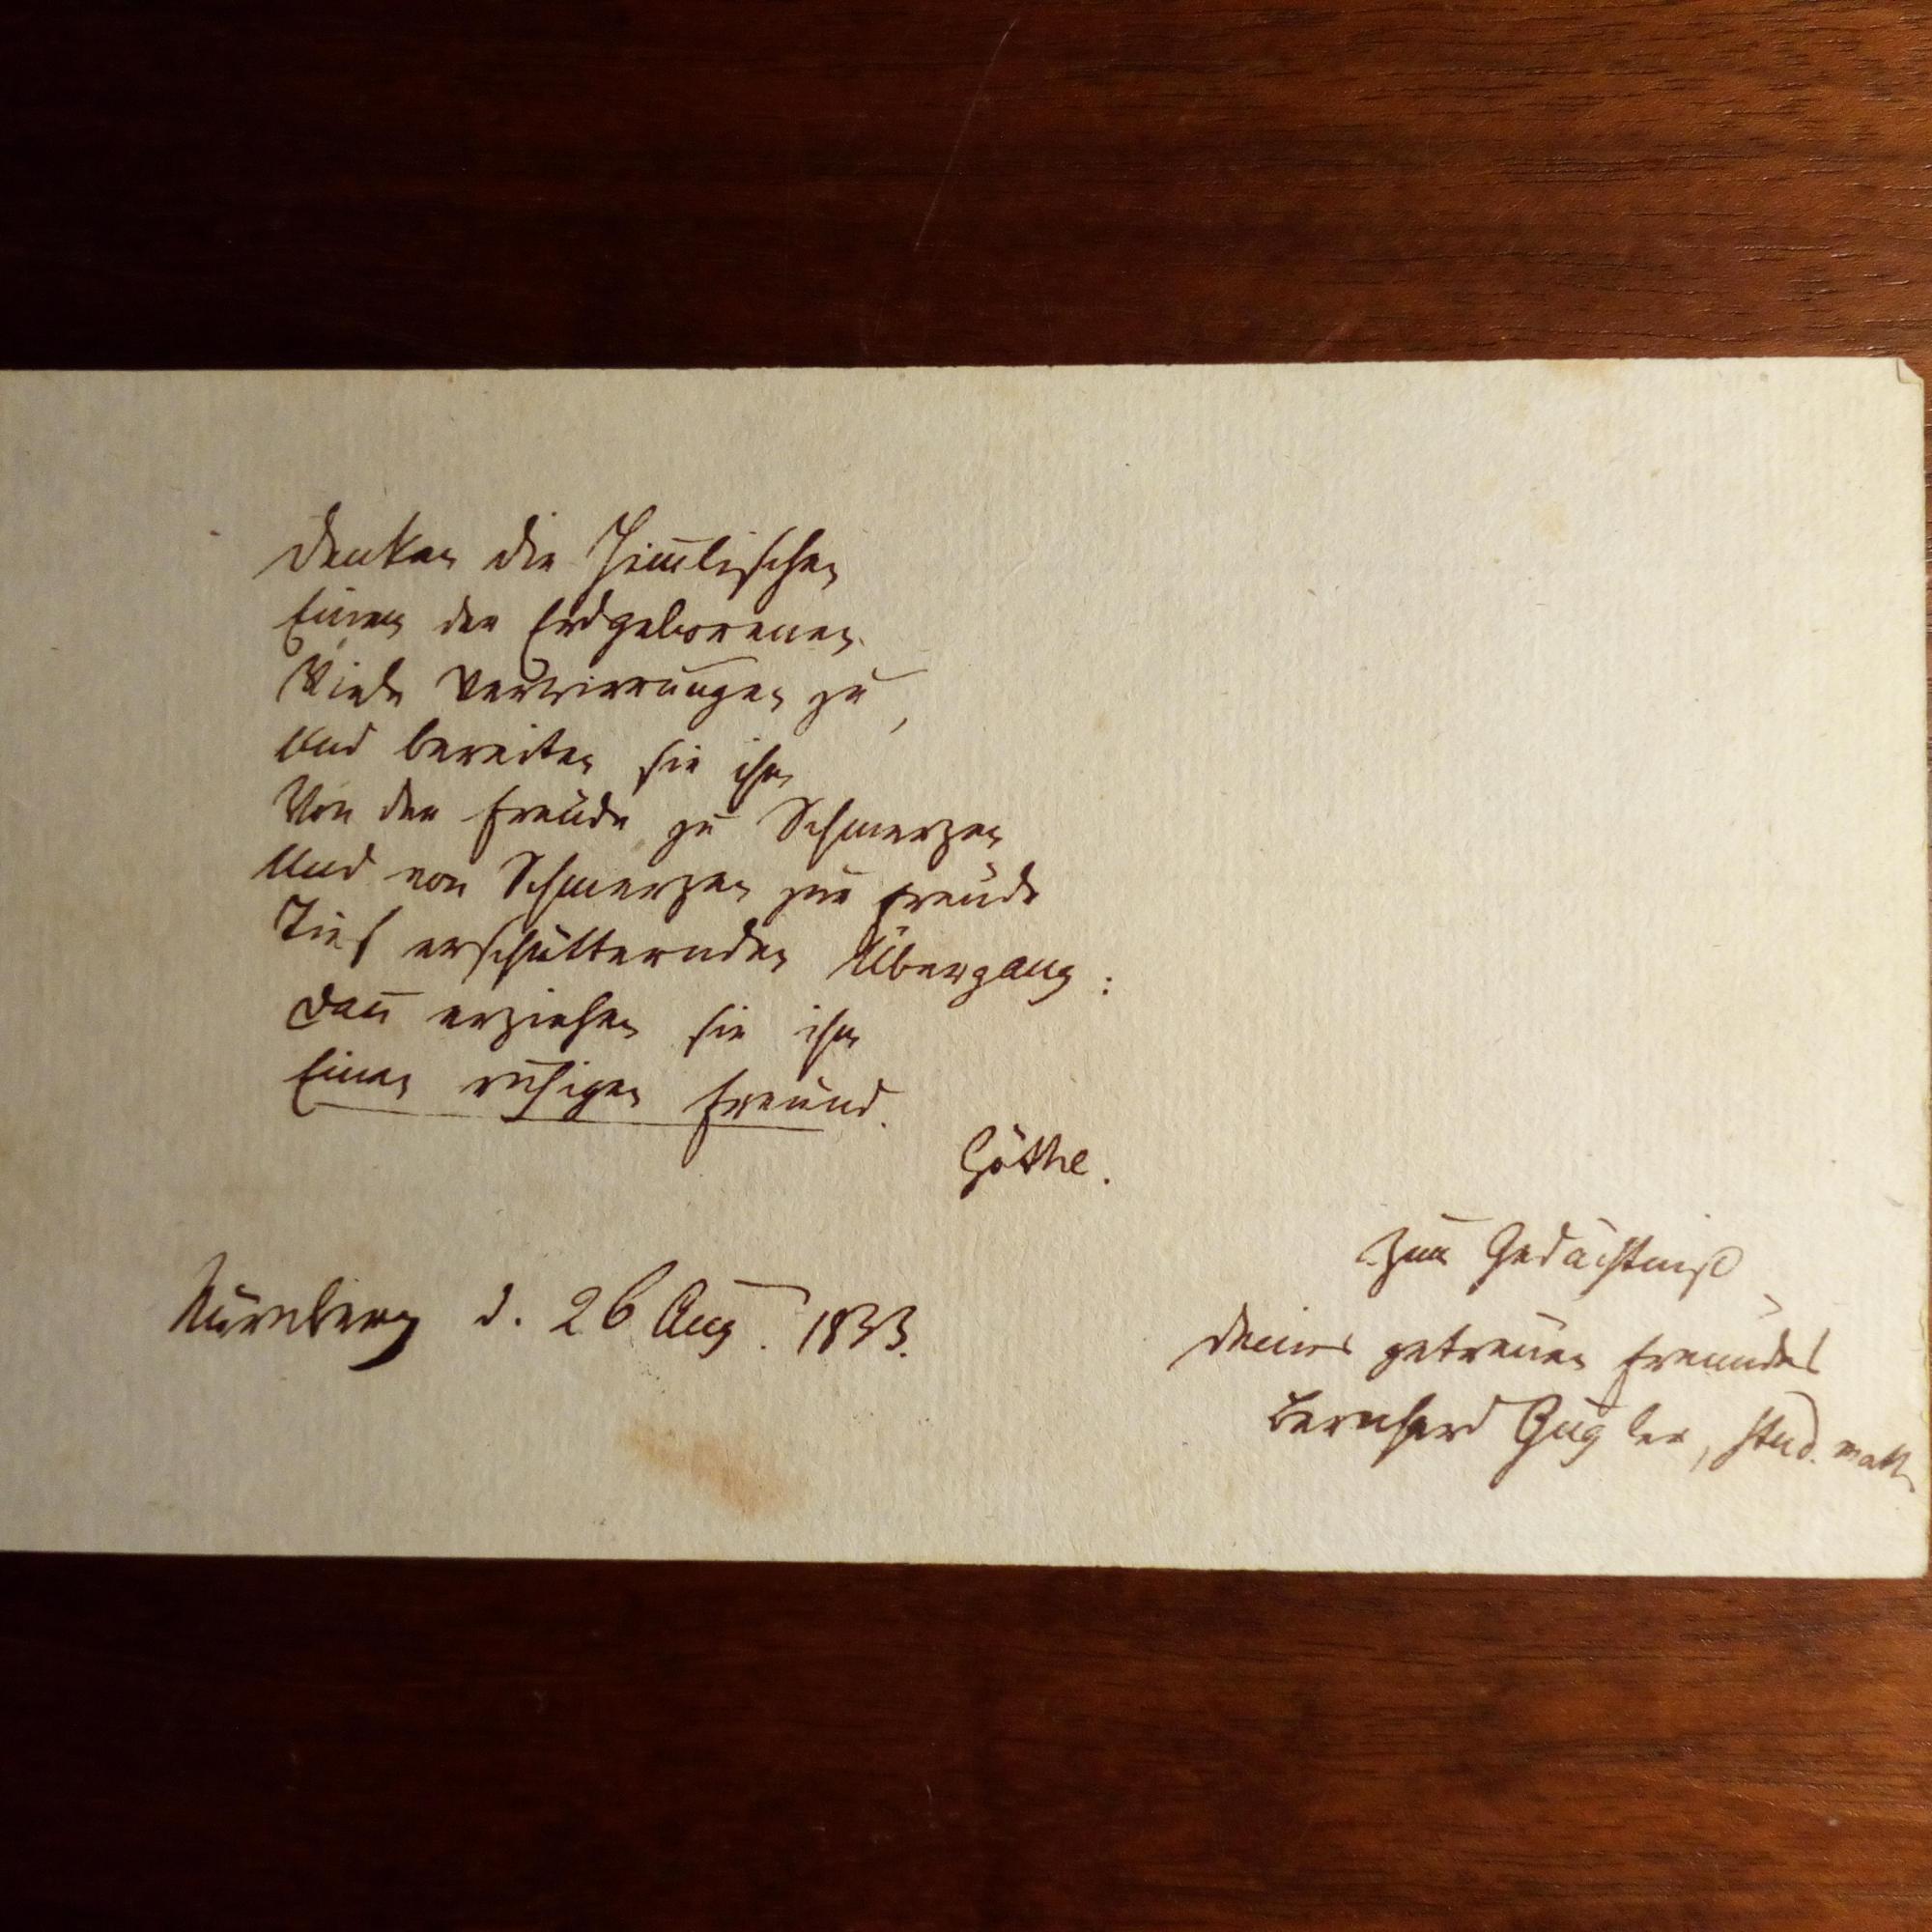 Denken die Him̅lischen
Einem der Erdgeborenen
Viele Verwirrungen zu,
Und bereiten sie ihm
Von der Freude zu Schmerzen
Und von Schmerzen zur Freude
Tief erschütternden Übergang:
Dan̅ erziehen sie ihm
Einen ruhigen Freund.
Göthe.
Nürnberg d. 26 Aug. 1833.
Zum Gedächtniß
deines getreuen Freundes
Bernhard Gugler, stud. math